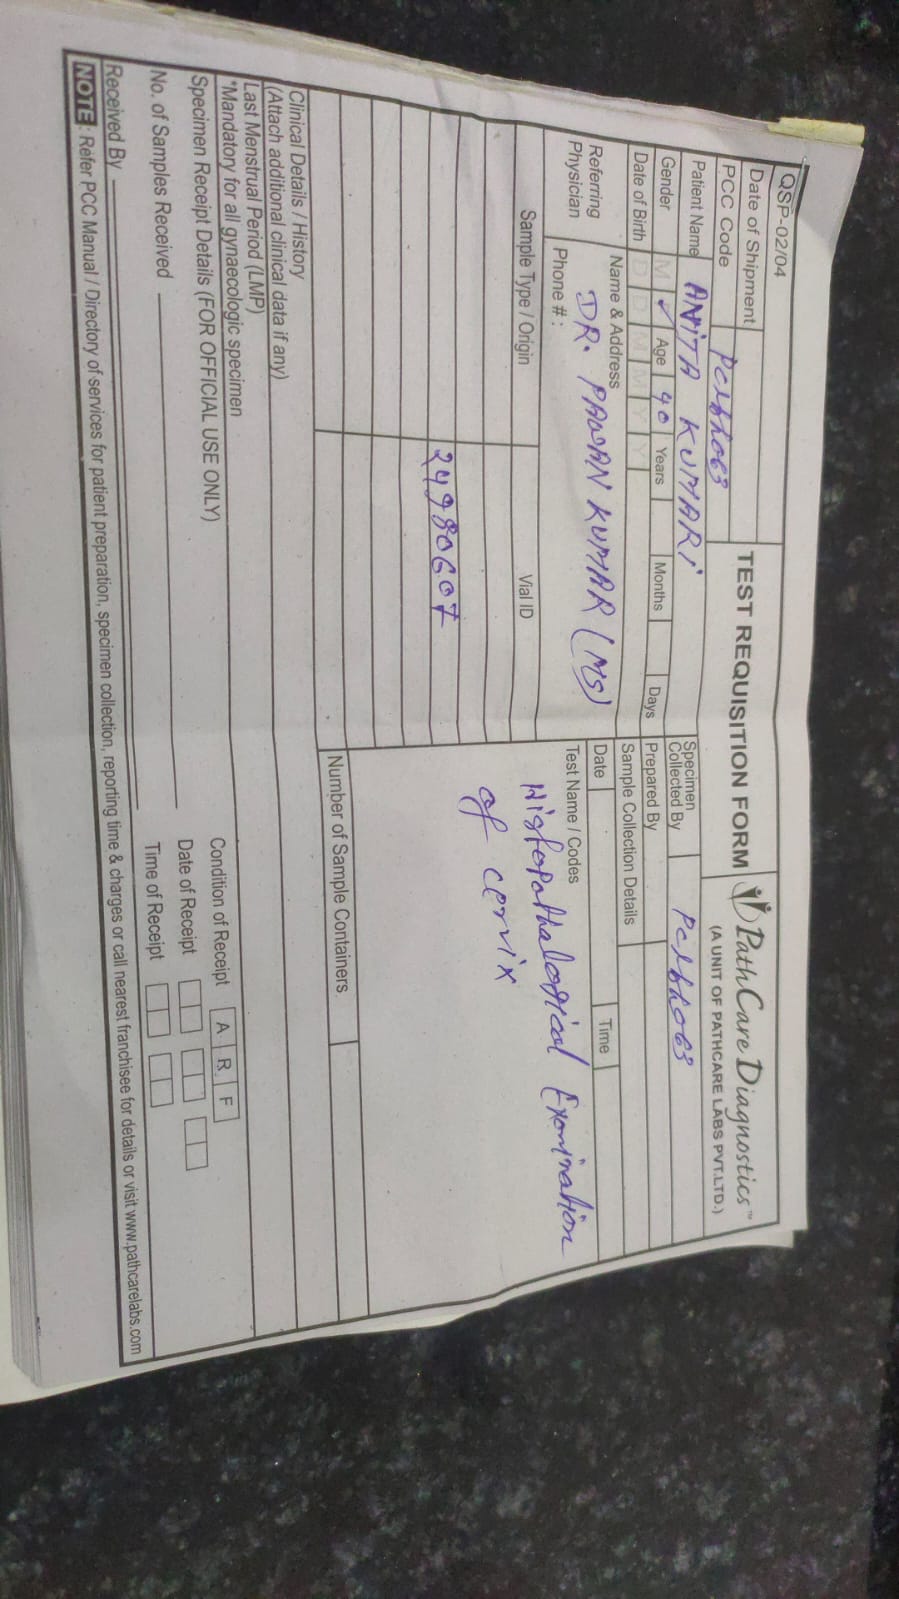 QSP-02/04
Date of Shipment
PCC Code
TEST REQUISITION FORM
PathCare Diagnostics™
(A UNIT OF PATHCARE LABS PVT.LTD.)
Patient Name ANITA KUMARI
Gender M ✓ Age 40 Years Months Days
Date of Birth D D M M Y Y
Referring Physician
Name & Address
DR. PAWAN KUMAR (MS)
Phone # :
Specimen Collected By
Prepared By
Sample Collection Details
Date Time
Sample Type / Origin Vial ID
24980607
Test Name / Codes
Histopathalogical Examination
of cervix
Number of Sample Containers
Clinical Details / History
(Attach additional clinical data if any)
Last Menstrual Period (LMP)
*Mandatory for all gynaecologic specimen
Specimen Receipt Details (FOR OFFICIAL USE ONLY)
Condition of Receipt A R F
No. of Samples Received
Date of Receipt
Time of Receipt
Received By
NOTE : Refer PCC Manual / Directory of services for patient preparation, specimen collection, reporting time & charges or call nearest franchisee for details or visit www.pathcarelabs.com